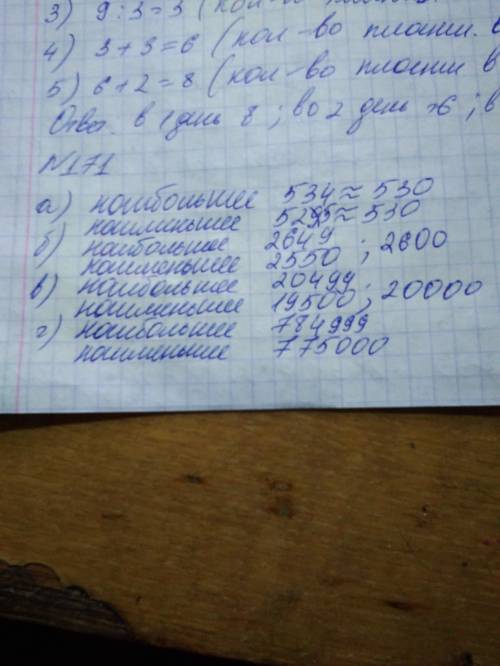 3) 9:3=3 (кол-во
4) 3+3=6 (кол-во плотин.
5) 6+2=8 (кол-во плотин в
Ответ. в 1 день 8; во 2 день 6; в
№171
а) наибольшее 534≈530
наименьшее 525≈530
б) наибольшее 2649
наименьшее 2550 ; 2600
в) наибольшее 20499
наименьшее 19500 ; 20000
г) наибольшее 784999
наименьшее 775000